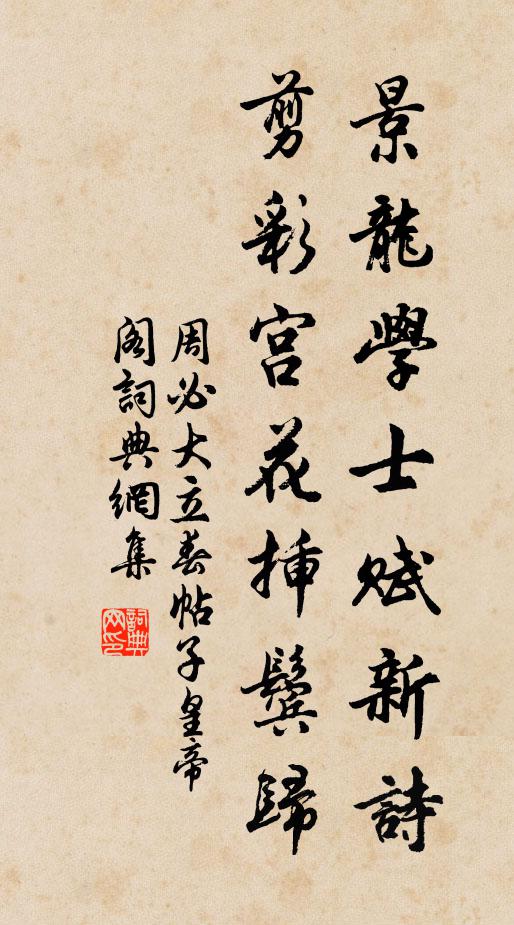 景龍學士賦新詩
剪彩宮花插鬢歸
周必大立春帖子皇帝
閣詞典網集
詞典网印